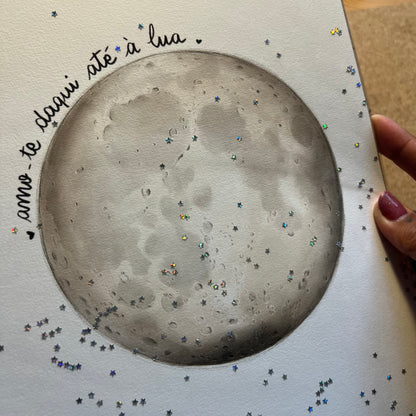 ♥ amo-te daqui até à lua ♥